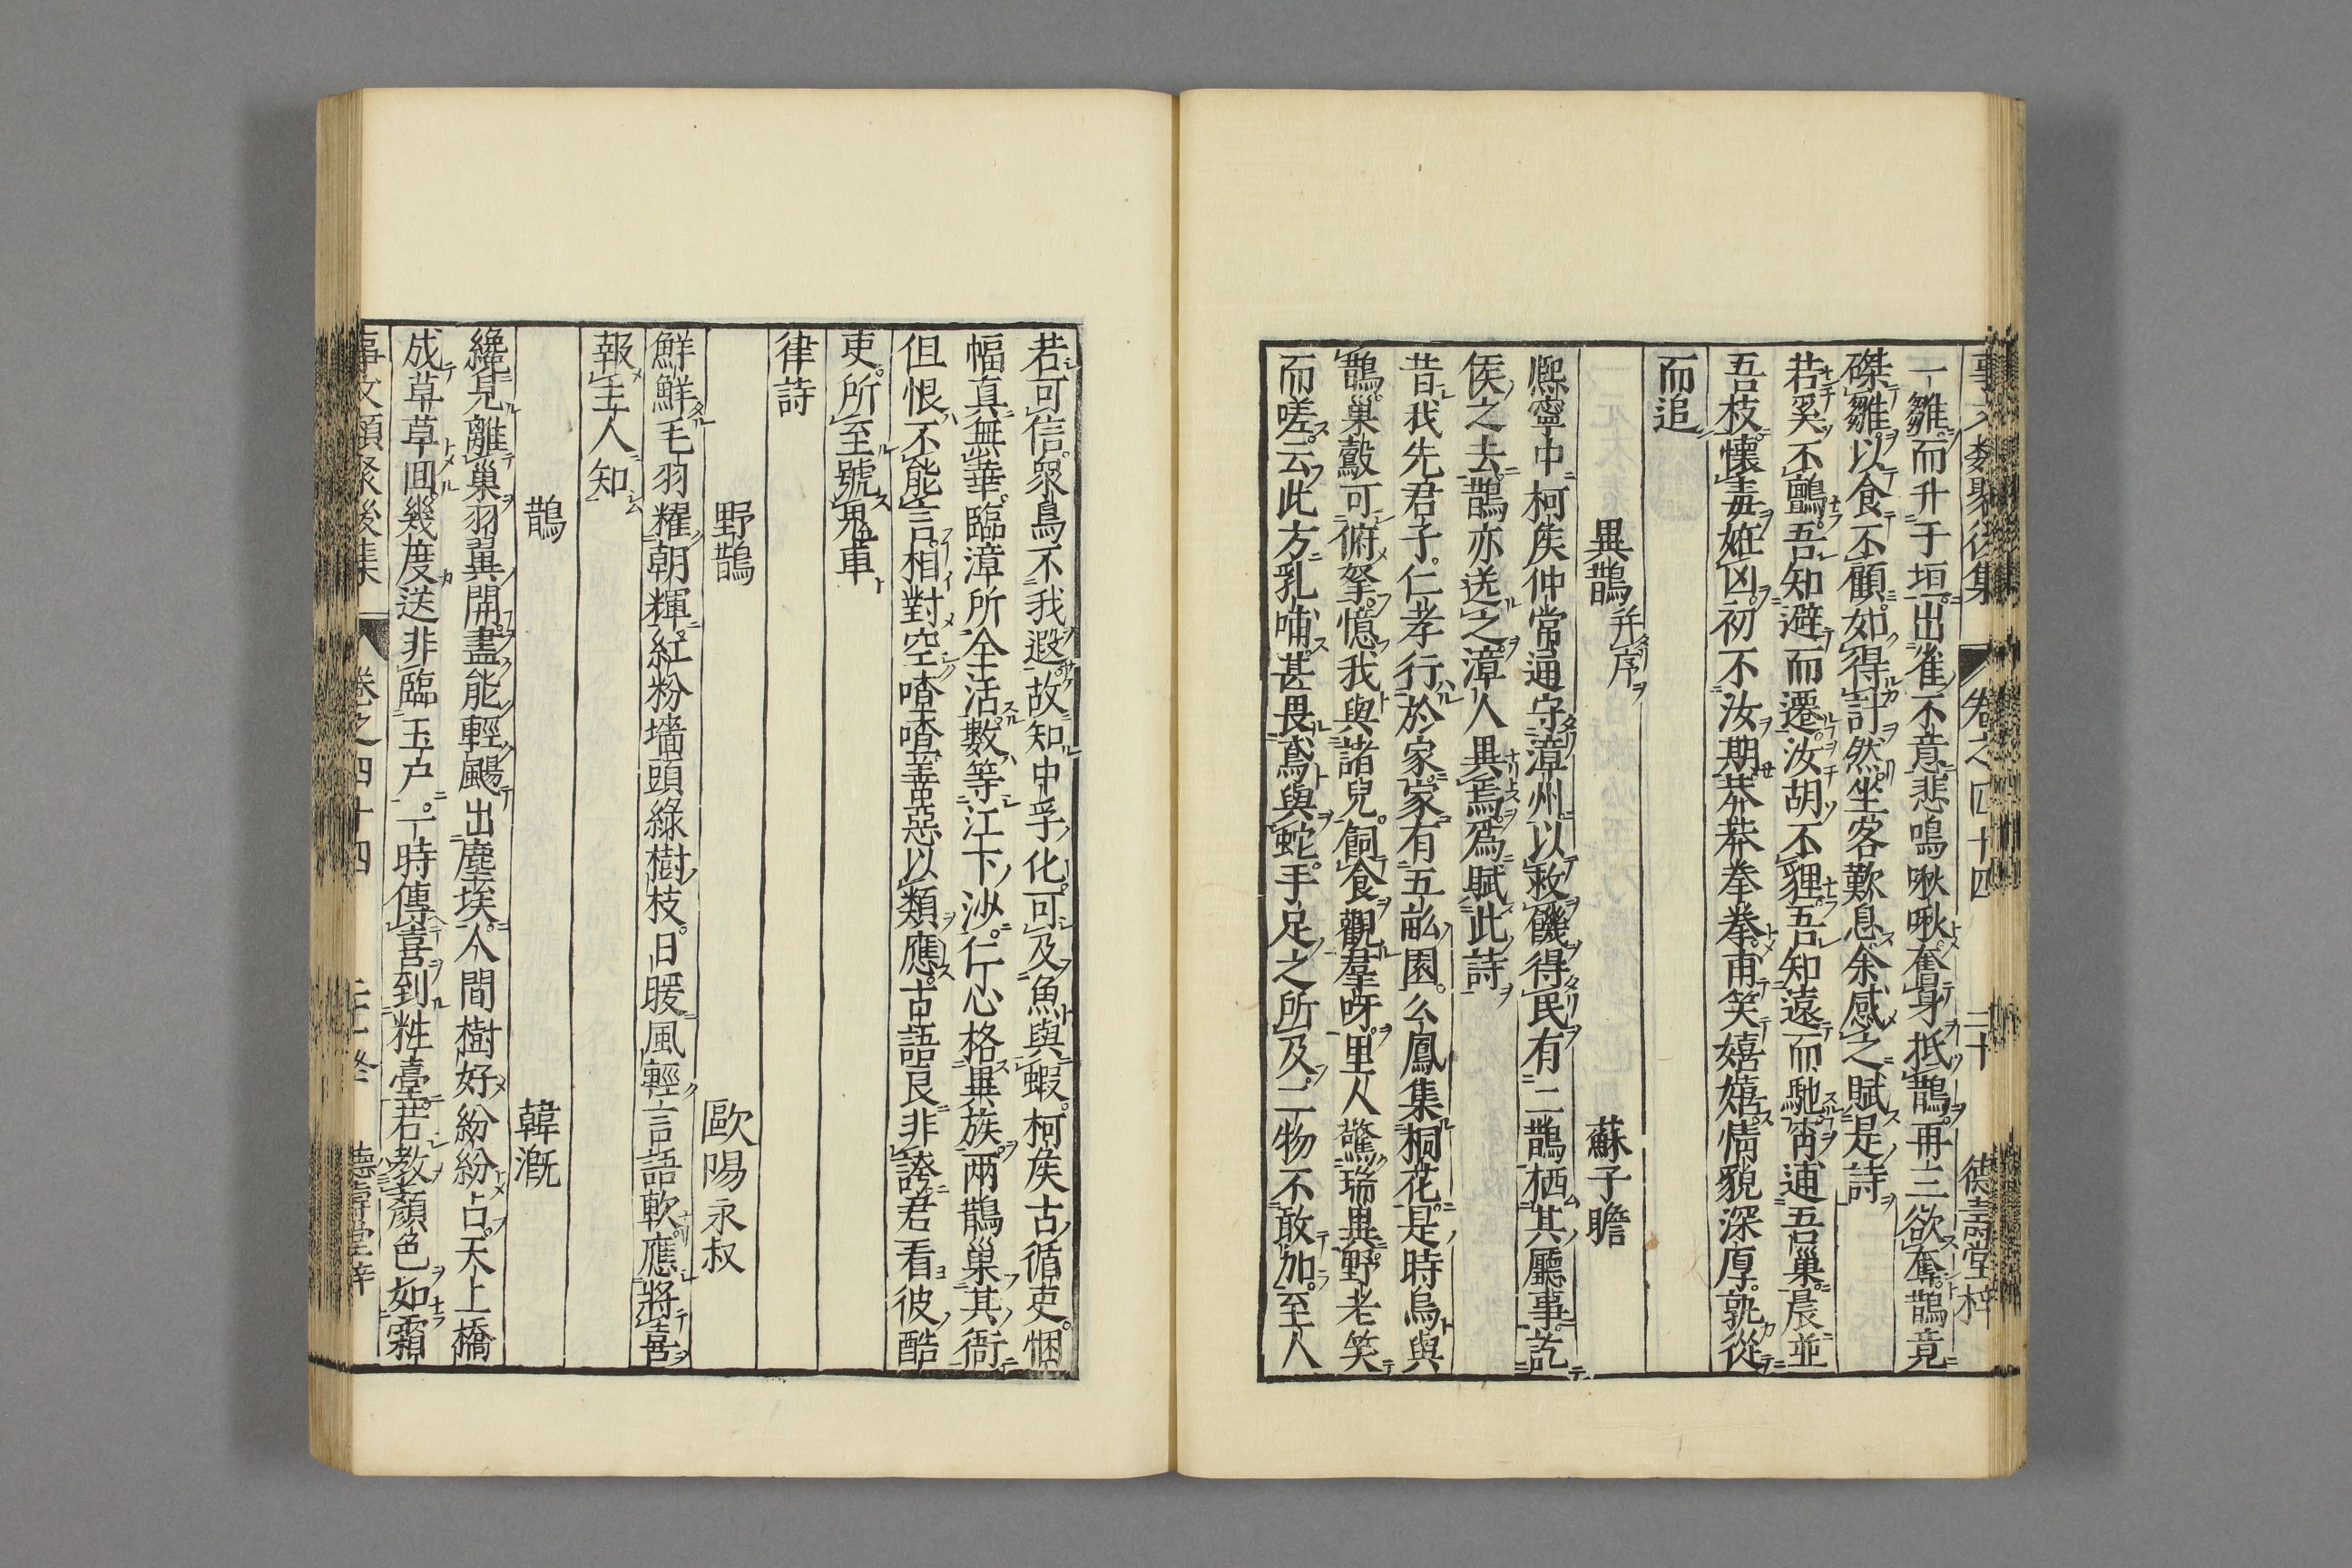 事文類聚後集 卷之四十四 二十 德壽堂梓
一雛而升于垣出雀不意悲鳴啾啾奮身抵鵲再三欲奪鵲竟
磔雛以食不顧如得計然坐客歎息余感之賦是詩
若奚不鸇吾知避而遷汝胡不貍吾知遠而馳甯逋吾巢晨並
吾枝懷毒妊凶初不汝期恭恭拳拳甫笑嬉嬉情貌深厚孰從
而追
異鵲并序 蘇子瞻
熈寧中柯矦仲常通守漳州以救饑得民有二鵲栖其廳事訖
矦之去鵲亦送之漳人異焉爲賦此詩
昔我先君子仁孝行於家家有五畝園么鳳集桐花是時烏與
鵲巢鷇可俯拏憶我與諸兒飼食觀羣呀里人驚瑞異野老笑
而嗟云此方乳哺甚畏鳶與蛇手足之所及二物不敢加至人
若可信衆鳥不我遐故知中孚化可及魚與蝦柯矦古循吏悃
愊真無華臨漳所全活數等江下沙仁心格異族兩鵲巢其衙
但恨不能言相對空喳喳善惡以類應古語良非誇君看彼酷
吏所至號鬼車
律詩
野鵲 歐陽永叔
鮮鮮毛羽耀朝輝紅粉墻頭綠樹枝日暖風輕言語軟應將喜
報主人知
鵲 韓漑
纔見離巢羽翼開盡能輕颺出塵埃人間樹好紛紛占天上橋
成草草回幾度送非臨玉户一時傳喜到粧臺若教顏色如霜
事文類聚後集 卷之四十四 德壽堂梓